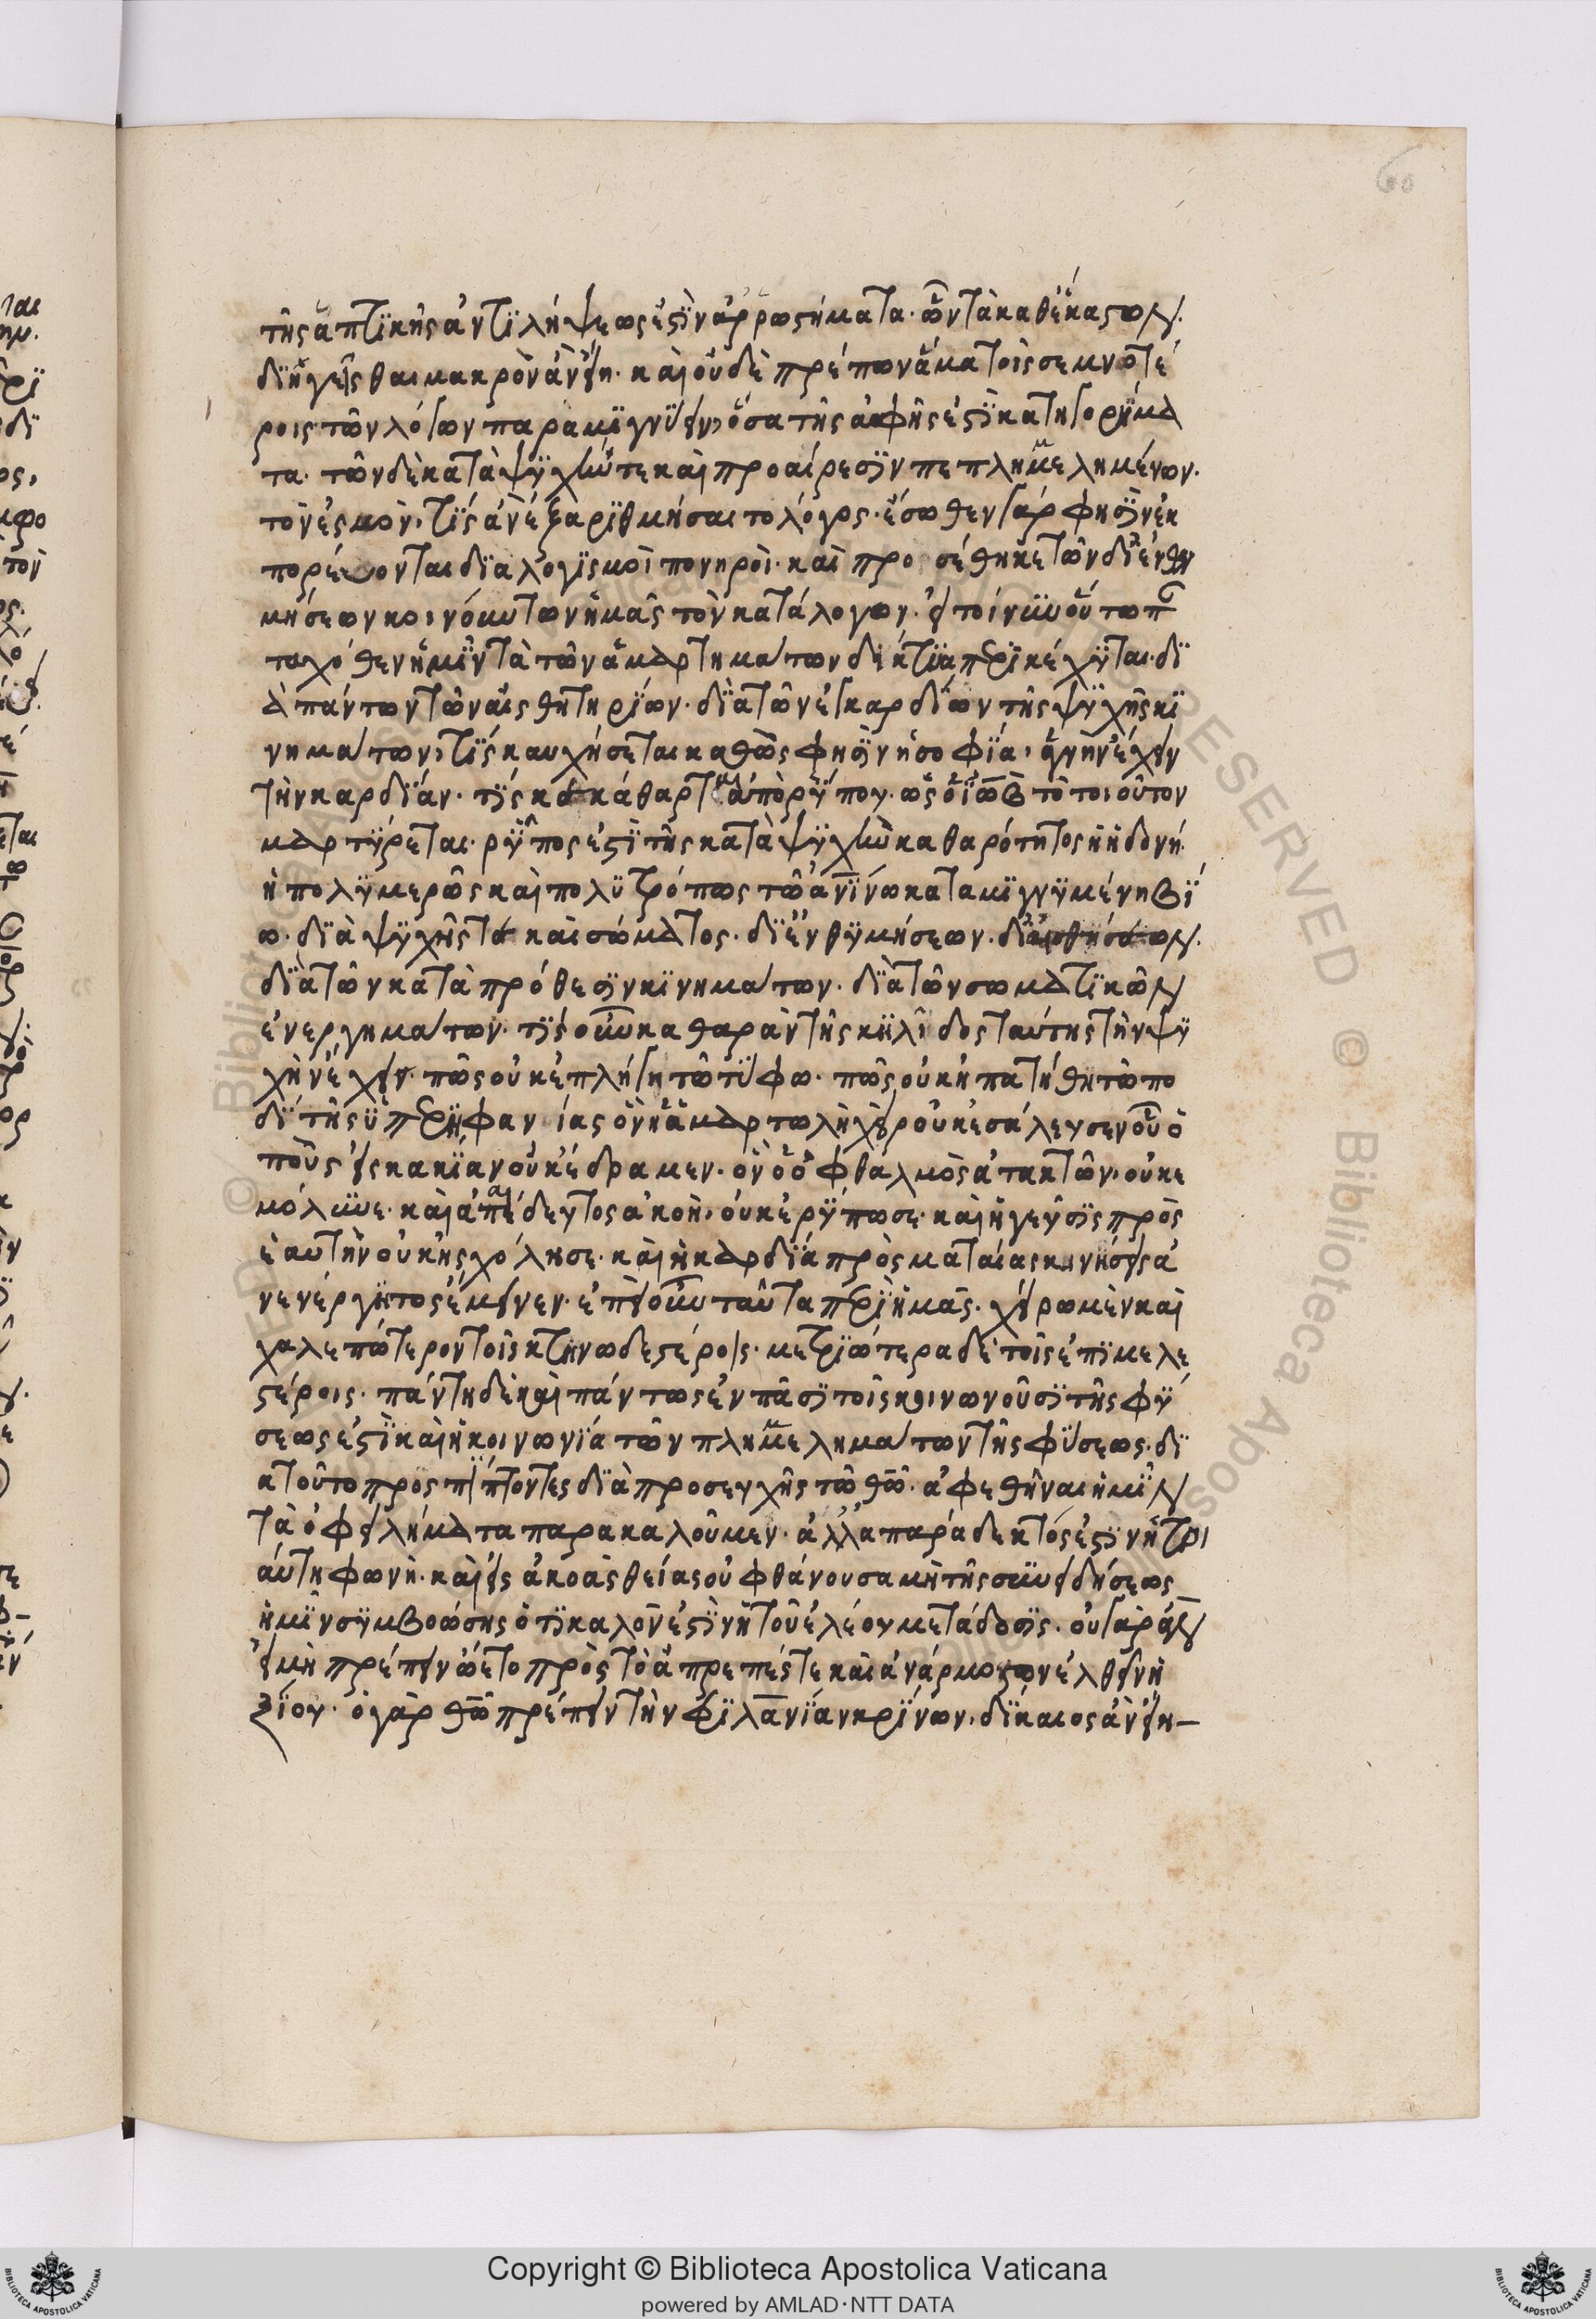 60
τῆς ἁπτϊκῆς ἀντϊλήψεως ἐστϊν ἀρρωστήματα. ὧν τὰ καθ' ἕκαστων.
δϊηγεῖσθαι μακρὸν ἂν εἴη. καὶ οὐδὲ πρέπων ἅμα τοῖς σεμνοτέ
ροις τῶν λόγων παραμϊγνϋειν, ὅσα τῆς ἀφῆς ἐστϊ κατηγορήμα
τα. τῶν δὲ κατὰ ψϋχήν τε καὶ προαίρεσϊν πεπλημμελημένων.
τὸν ἑσμὸν, τϊς ἂν ἐξαρϊθμήσαιτο λόγος. ἔσωθεν γάρ φησϊν ἐκ
πορέυονται δϊαλογϊσμοὶ πονηροὶ. καὶ προσέθηκε τῶν δϊενθυ
μήσεων κοινόυντων ἡμᾶς τὸν κατάλογων. εἰ τοίνυν οὕτω π
ταχόθεν ἡμῖν τὰ τῶν ἁμαρτημάτων δίκτυα περϊκέχϋται. δϊ
ὰ πάντων τῶν αἰσθητηρϊων. δϊὰ τῶν ἐγκαρδϊων τῆς ψϋχῆς κϊ
νημάτων, τϊς καυχήσεται καθὼς φησϊν ἡ σοφϊα, ἁγνὴν ἔχειν
τὴν καρδϊαν. τϊς κάθαρτ ἀπὸ ρϋπου. ὡς ὁ ϊὼβ τὸ τοιοῦτον
μαρτϋρεται. ρϋπος ἐστϊ τῆς κατὰ ψϋχὴν καθαρότητος ἡ ἡδονή.
ἡ πολϋμερῶς καὶ πολϋτρόπως τῶ ἀνϊνω καταμϊγνϋμένη βϊ
ω. δϊὰ ψϋχῆς τὲ καὶ σώματος. δϊενθϋμήσεων. δϊαισθήσεων.
δϊὰ τῶν κατὰ πρόθεσϊν κϊνημάτων. δϊὰ τῶν σωματϊκῶν
ἐνεργημάτων. τϊς οὖν καθαρὰν τῆς κηλῖδος ταύτης τὴν ψϋ
χὴν ἔχει. πῶς οὐκ ἐπλήγη τῶ τϋφω. πῶς οὐκ ἠπατήθη τῶ πο
δϊ τῆς ϋπερηφανίας ὃν ἡ ἁμαρτωλὴ χεὶρ οὐκ ἐσάλευσεν οὗ ὁ
ποῦς εἰς κακϊαν οὐκ ἔδραμεν. ὃν ὁ ὀφθαλμὸς ἀτακτῶν, οὐκ ε
μόλυνε. καὶ ἀπαίδευτος ἀκοὴ, οὐκ ἐρϋπωσε. καὶ ἡ γεῦσϊς πρὸς
ἑαυτὴν οὐκ ἠσχόλησε. καὶ ἡ καρδϊα πρὸς ματαίας κινήσεις ἀ
νενέργητος ἔμεινεν. ἐπεὶ οὖν ταῦτα περϊ ἡμᾶς. χείρω μὲν καὶ
χαλεπώτερον τοῖς κτηνωδεστέροις. μετρϊώτερα δὲ τοῖς ἐπϊμελε
στέροις. πάντη δὲ καὶ πάντως ἐν πᾶσϊ τοῖς κοινωνοῦσϊ τῆς φϋ
σεως ἐστϊ καὶ ἡ κοινωνϊα τῶν πλημμελημάτων τῆς φϋσεως. δϊ
ατοῦτο προσπϊπτοντες δϊὰ προσευχῆς τῶ θῶ. ἀφεθῆναι ἡμῖν
τὰ ὀφειλήματα παρακαλοῦμεν. ἀλλὰ παράδεκτός ἐστϊν ἡ τοι
άυτη φωνὴ. καὶ εἰς ἀκοὰς θείας οὐ φθάνουσα μὴ τῆς συνειδήσεως
ἡμϊν σϋμβοώσης ὅτϊ καλὸν ἐστϊν ἡ τοῦ ἐλέου μετάδοσϊς. οὐ γὰρ ἂν
εἰ μὴ πρέπειν ὤετο πρὸς τὸ ἀπρεπές τε καὶ ἀνάρμοστον ἐλθεῖν ἠ
ξϊου. ὁ γὰρ θῶ πρέπειν τὴν φϊλανϊαν κρϊνων, δϊκαιος ἂν εἴη
Copyright © Biblioteca Apostolica Vaticana
powered by AMLAD·NTT DATA